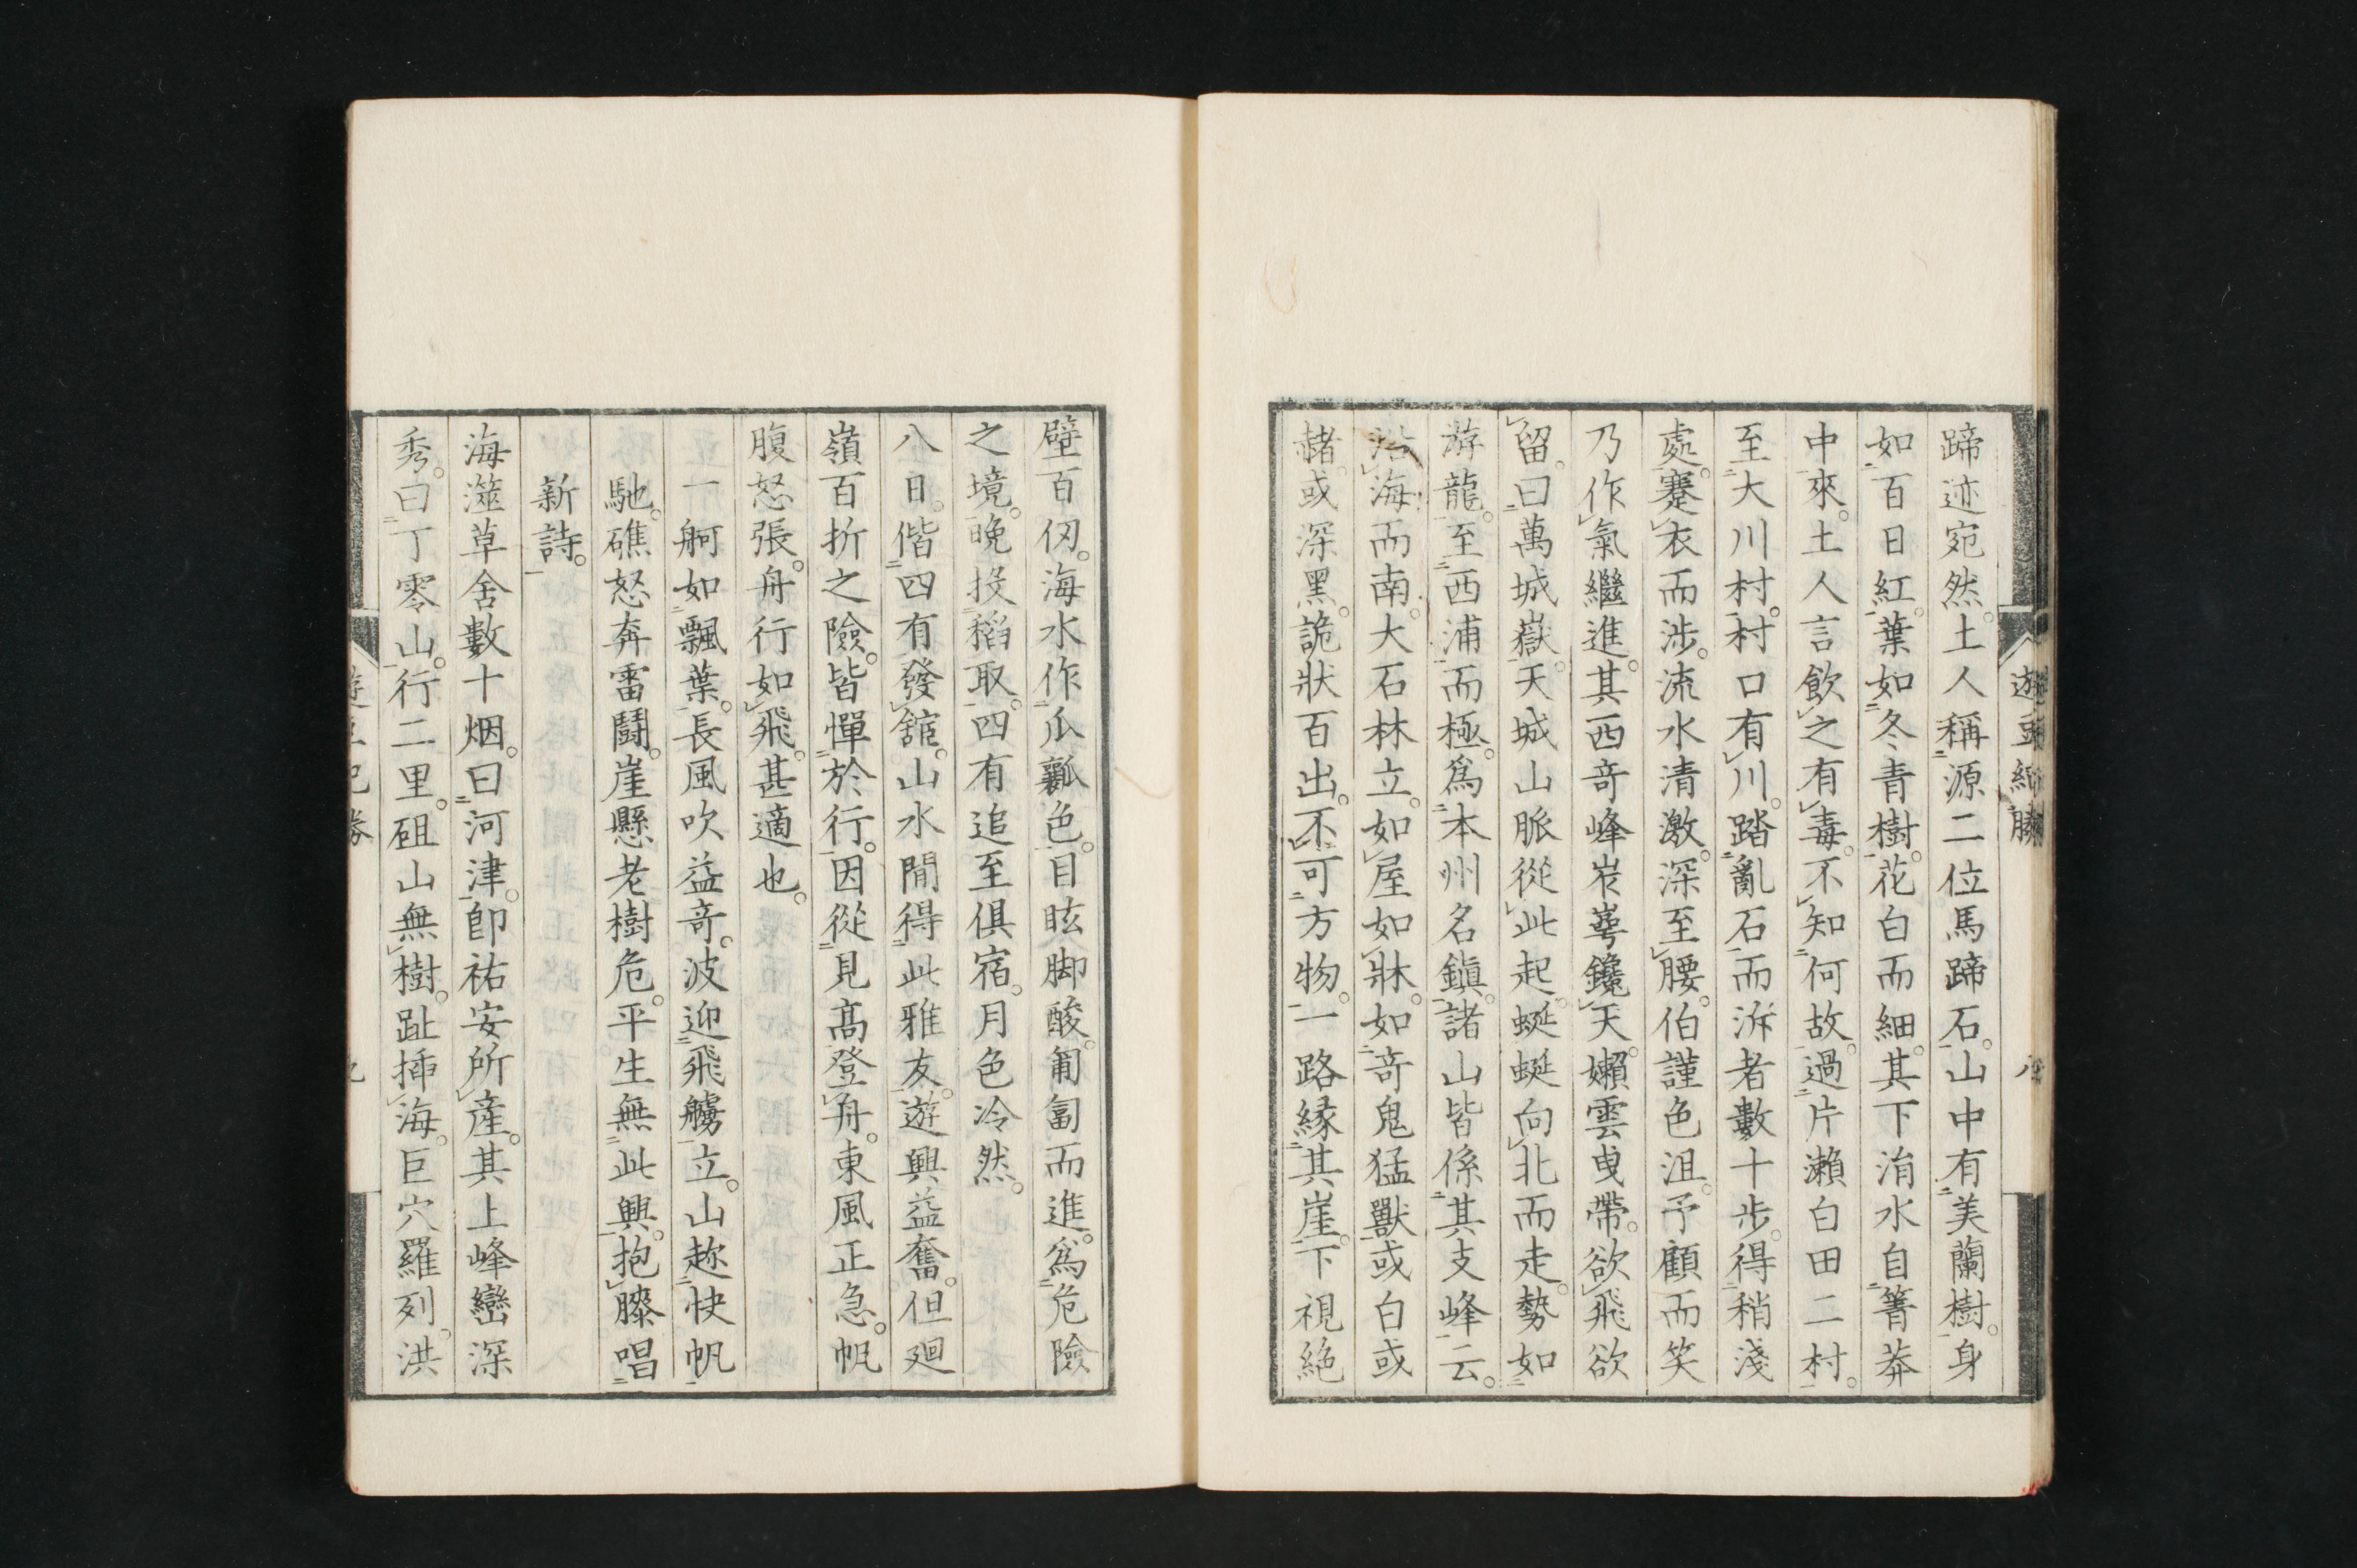 蹄迹宛然。土人稱源二位馬蹄石。山中有美蘭樹。身
如百日紅。葉如冬青樹。花白而細。其下涓水自箐莽
中來。土人言飲之有毒。不知何故。過片瀬白田二村。
至大川村。村口有川。踏亂石而泝者數十步。得稍淺
處。蹇衣而涉。流水清激。深至腰。伯謹色沮。予顧而笑
乃作氣繼進。其西奇峰岩崿鑱天。嬾雲曳帶。欲飛欲
留。曰萬城嶽。天城山脈從此起。蜒蜒向北而走。勢如
游龍。至西浦而極。爲本州名鎭。諸山皆係其支峰云。
沿海而南。大石林立。如屋如牀。如奇鬼猛獸。或白或
赭。或深黑。詭狀百出。不可方物。一路縁其崖。下視絶
遊豆紀勝
八
壁百仞。海水作瓜瓤色。目眩脚酸。匍匐而進。爲危險
之境。晩投稻取。四有追至俱宿。月色冷然。
八日。偕四有發舘。山水閒得此雅友。遊興益奮。但廻
嶺百折之險。皆憚於行。因從見高登舟。東風正急。帆
腹怒張。舟行如飛。甚適也。
一舸如飄葉。長風吹益奇。波迎飛艣立。山趂快帆
馳。礁怒奔雷鬪。崖懸老樹危。平生無此興。抱膝唱
新詩。
海澨草舍數十烟。曰河津。卽祐安所產。其上峰巒深
秀。曰丁零山。行二里。砠山無樹。趾插海。巨穴羅列。洪